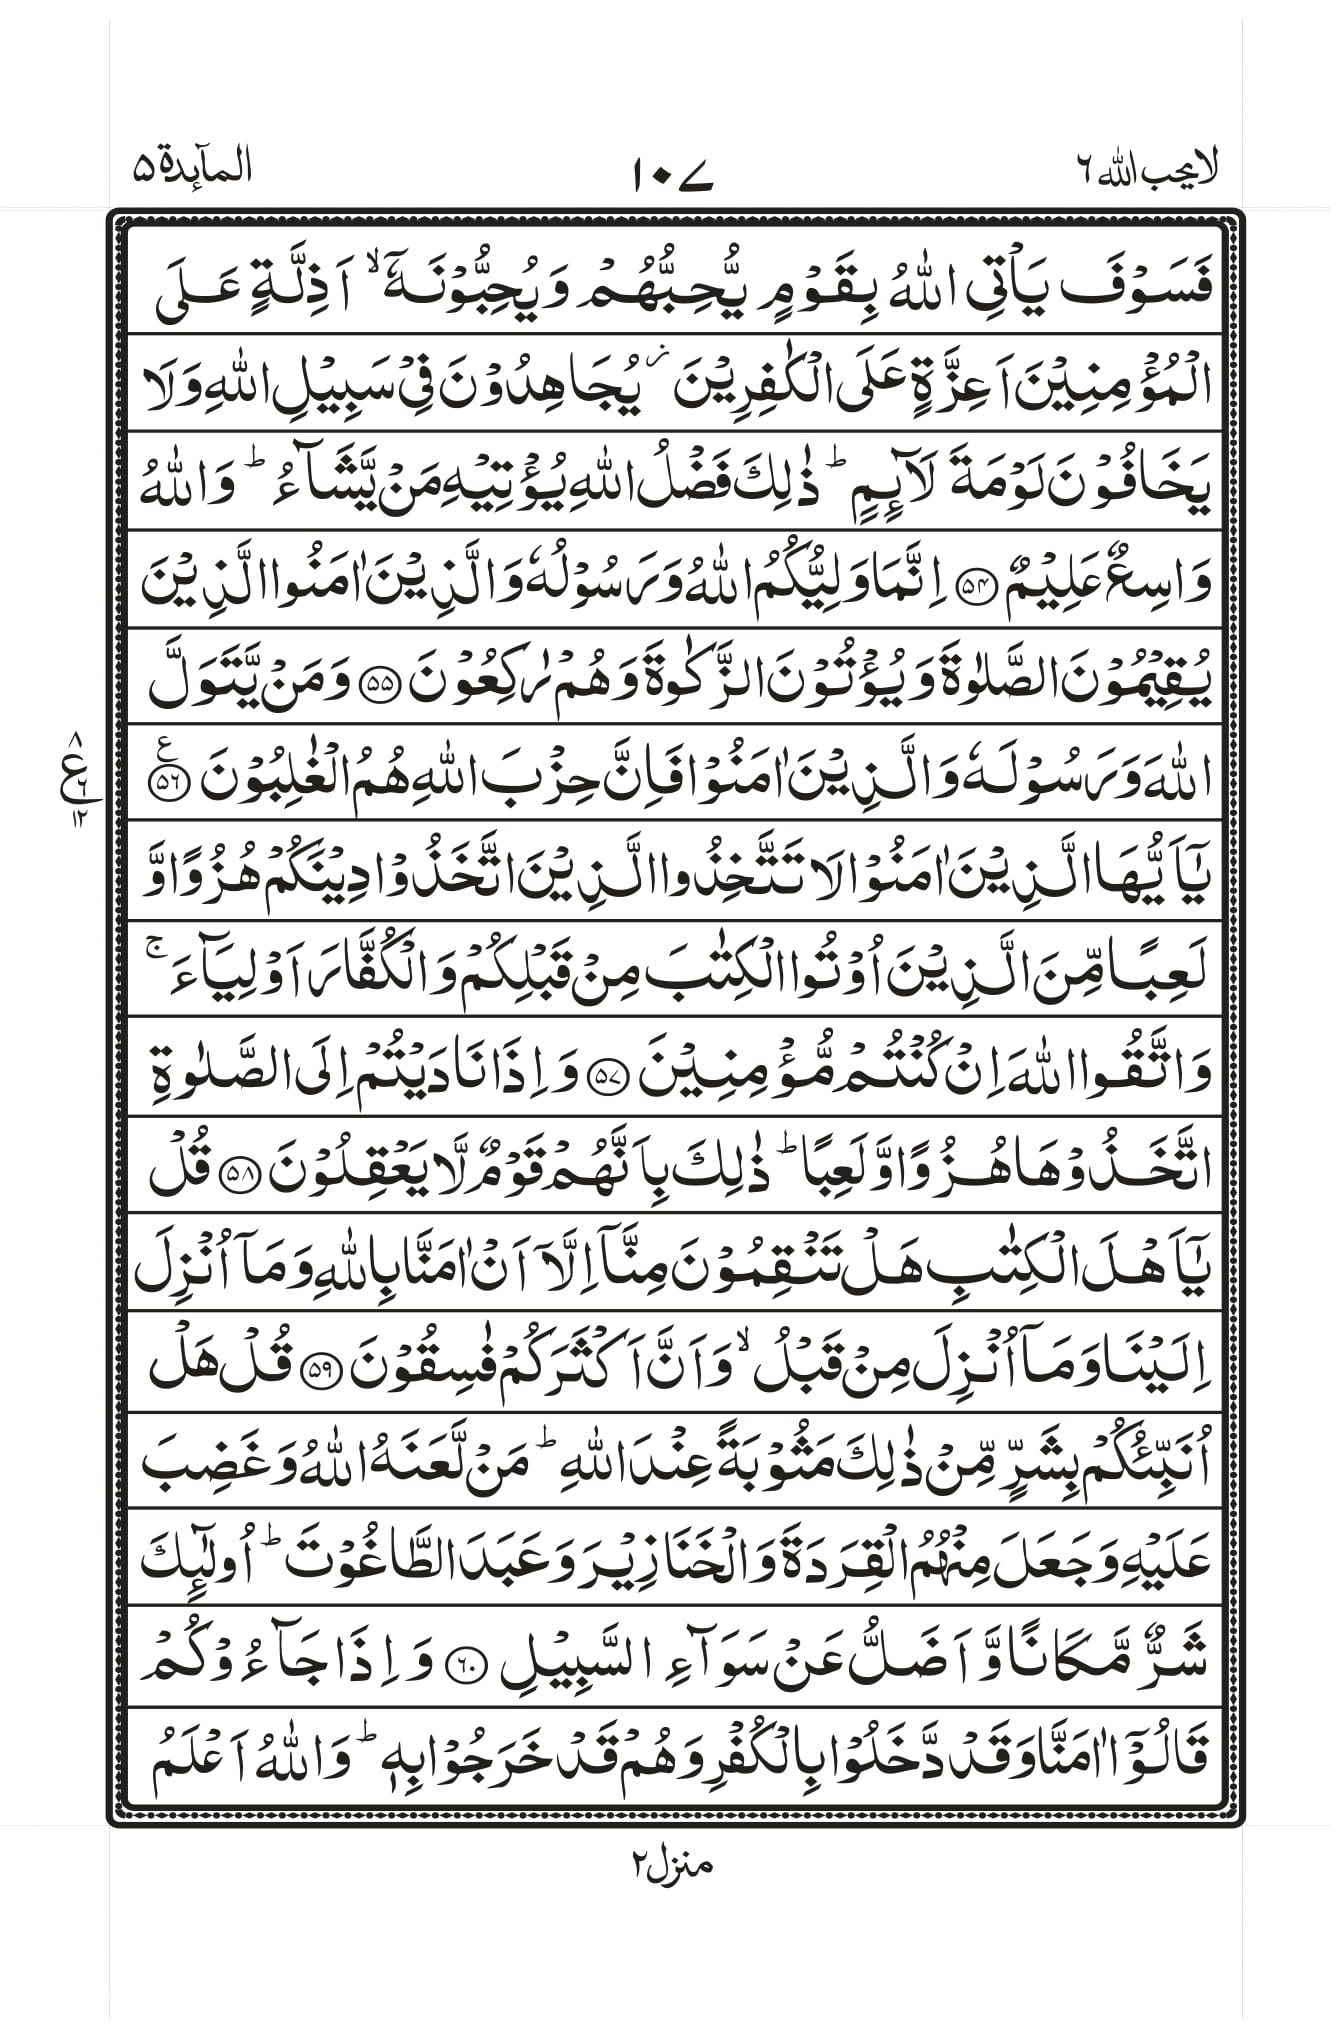 لا یحب الله ۶
۱۰۷
المآىِٕدة ۵
فَسَوْفَ یَاْتِی اللّٰهُ بِقَوْمٍ یُّحِبُّهُمْ وَیُحِبُّوْنَهٗۤ ۙ اَذِلَّةٍ عَلَی
الْمُؤْمِنِیْنَ اَعِزَّةٍ عَلَی الْكٰفِرِیْنَ ؗ یُجَاهِدُوْنَ فِیْ سَبِیْلِ اللّٰهِ وَلَا
یَخَافُوْنَ لَوْمَةَ لَآىِٕمٍ ؕ ذٰلِكَ فَضْلُ اللّٰهِ یُؤْتِیْهِ مَنْ یَّشَآءُ ؕ وَاللّٰهُ
وَاسِعٌ عَلِیْمٌ ۝۵۴ اِنَّمَا وَلِیُّكُمُ اللّٰهُ وَرَسُوْلُهٗ وَالَّذِیْنَ اٰمَنُوا الَّذِیْنَ
یُقِیْمُوْنَ الصَّلٰوةَ وَیُؤْتُوْنَ الزَّكٰوةَ وَهُمْ رٰكِعُوْنَ ۝۵۵ وَمَنْ یَّتَوَلَّ
اللّٰهَ وَرَسُوْلَهٗ وَالَّذِیْنَ اٰمَنُوْا فَاِنَّ حِزْبَ اللّٰهِ هُمُ الْغٰلِبُوْنَ ۝۵۶ ع
۸
ع ۶
۱۲
یٰۤاَیُّهَا الَّذِیْنَ اٰمَنُوْا لَا تَتَّخِذُوا الَّذِیْنَ اتَّخَذُوْا دِیْنَكُمْ هُزُوًا وَّ
لَعِبًا مِّنَ الَّذِیْنَ اُوْتُوا الْكِتٰبَ مِنْ قَبْلِكُمْ وَالْكُفَّارَ اَوْلِیَآءَ ۚ
وَاتَّقُوا اللّٰهَ اِنْ كُنْتُمْ مُّؤْمِنِیْنَ ۝۵۷ وَاِذَا نَادَیْتُمْ اِلَی الصَّلٰوةِ
اتَّخَذُوْهَا هُزُوًا وَّلَعِبًا ؕ ذٰلِكَ بِاَنَّهُمْ قَوْمٌ لَّا یَعْقِلُوْنَ ۝۵۸ قُلْ
یٰۤاَهْلَ الْكِتٰبِ هَلْ تَنْقِمُوْنَ مِنَّاۤ اِلَّاۤ اَنْ اٰمَنَّا بِاللّٰهِ وَمَاۤ اُنْزِلَ
اِلَیْنَا وَمَاۤ اُنْزِلَ مِنْ قَبْلُ ۙ وَاَنَّ اَكْثَرَكُمْ فٰسِقُوْنَ ۝۵۹ قُلْ هَلْ
اُنَبِّئُكُمْ بِشَرٍّ مِّنْ ذٰلِكَ مَثُوْبَةً عِنْدَ اللّٰهِ ؕ مَنْ لَّعَنَهُ اللّٰهُ وَغَضِبَ
عَلَیْهِ وَجَعَلَ مِنْهُمُ الْقِرَدَةَ وَالْخَنَازِیْرَ وَعَبَدَ الطَّاغُوْتَ ؕ اُولٰٓىِٕكَ
شَرٌّ مَّكَانًا وَّاَضَلُّ عَنْ سَوَآءِ السَّبِیْلِ ۝۶۰ وَاِذَا جَآءُوْكُمْ
قَالُوْۤا اٰمَنَّا وَقَدْ دَّخَلُوْا بِالْكُفْرِ وَهُمْ قَدْ خَرَجُوْا بِهٖ ؕ وَاللّٰهُ اَعْلَمُ
منزل ۲